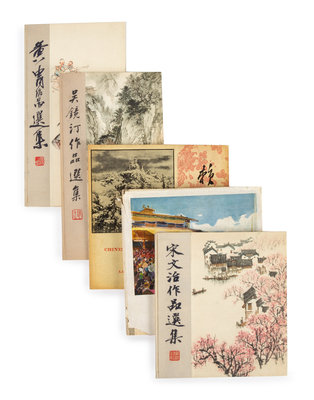 黄胄作品選集
吴鏡汀作品選集
CHINES
宋文治作品選集